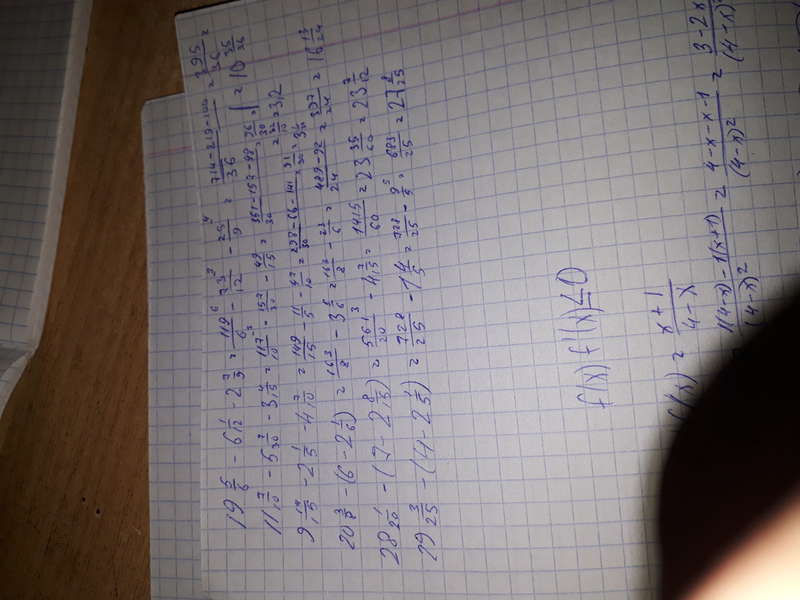 19 5/6 - 6 1/12 - 2 7/9 = 119/6 - 73/12 - 25/9 = 714-219-100/36 = 395/36 = 10 35/36
11 7/10 - 5 7/30 - 3 4/15 = 117/10 - 157/30 - 49/15 = 351-157-98/30 = 96/30 = 32/10 = 3,2
9 14/15 - 2 1/5 - 4 7/10 = 149/15 - 11/5 - 47/10 = 298-66-141/30 = 91/30 = 3 1/30
20 3/8 - (6 - 2 1/6) = 163/8 - 3 5/6 = 163/8 - 23/6 = 489-92/24 = 397/24 = 16 13/24
28 1/20 - (7 - 2 8/15) = 561/20 - 4 7/15 = 1415/60 = 23 35/60 = 23 7/12
29 3/25 - (4 - 2 1/5) = 728/25 - 1 4/5 = 728/25 - 9/5 = 683/25 = 27 8/25
f(x) f'(x) ≤ 0
f(x) = x+1/4-x
1(4-x) - 1(x+1)/(4-x)² = 4-x-x-1/(4-x)² = 3-2x/(4-x)²